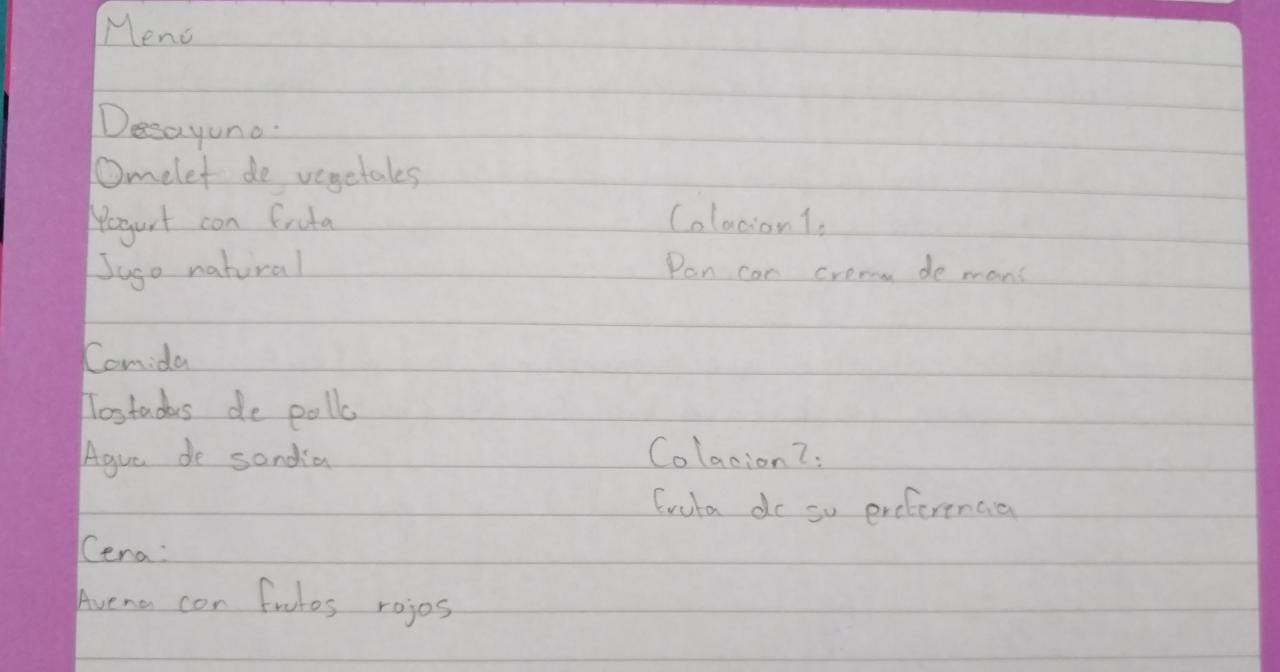 Menú
Desayuno:
Omelet de vegetales
Yogurt con fruta
Jugo natural
Colacion 1:
Pan con crema de maní
Comida
Tostadas de pollo
Agua de sandia
Colacion 2:
Fruta de su preferencia
Cena:
Avena con frutos rojos